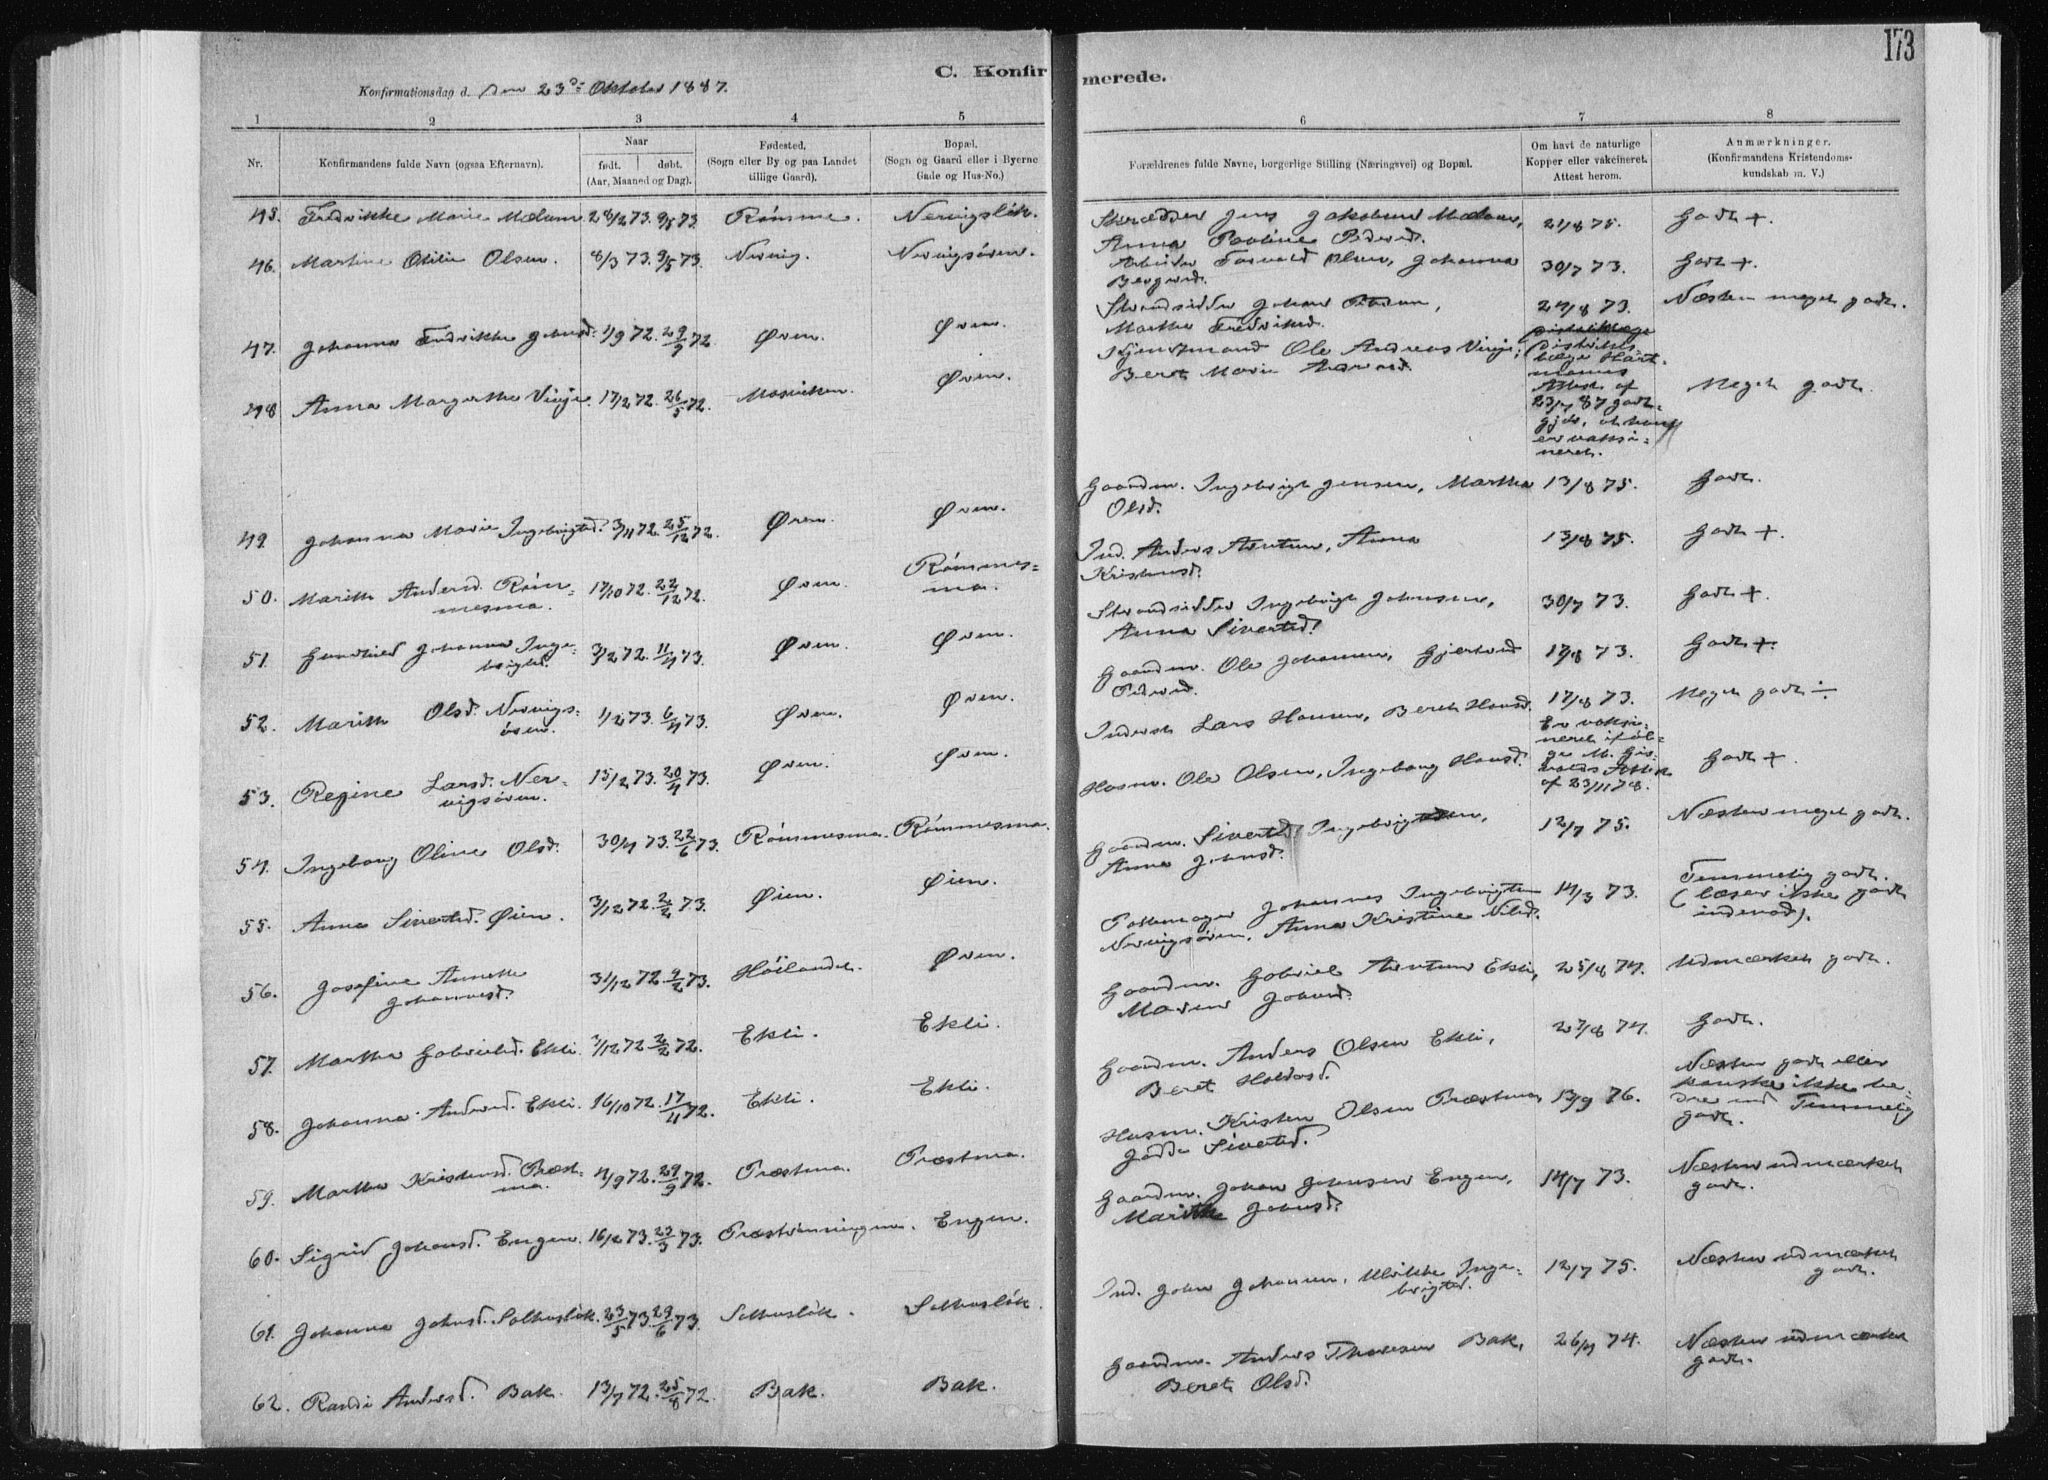 173
C. Konfir
merede.
Konfirmationsdag d. den 23de Oktober 1887.
1 2 3 4 5 6 7 8
Nr.
Konfirmandens fulde Navn (ogsaa Efternavn).
Naar
født. døbt.
(Aar, Maaned og Dag).
Fødested,
(Sogn eller By og paa Landet
tillige Gaard).
Bopæl.
(Sogn og Gaard eller i Byerne
Gade og Hus-No.)
Forældrenes fulde Navne, borgerlige Stilling (Næringsvei) og Bopæl.
Om havt de naturlige
Kopper eller vakcineret.
Attest herom.
Anmærkninger.
(Konfirmandens Kristendoms-
kundskab m. V.)
45. Fredrikke Marie Mælum 28/2 73. 9/5 73. Rømme. Nervigsløk.
Skrædder Jens Jakobsen Mælum, 21/8 75. Godt +.
Anna Pauline Pedersd.
46. Martine Otilie Olsen. 8/3 73. 9/5 73. Nervig. Nervigsøren.
Arbeider Torvald Olsen, Johanna 30/7 73. Godt +.
47. Johanna Fredrikke Johnsd. 1/9 72. 29/9 72. Øren. Øren.
Strandsidder Johan 24/8 73. Næsten meget godt.
Martha Fredriksd.
48 Anna Margrethe Vinje. 17/2 72. 26/5 72. Mosviken. Øren.
Hjemsmand Ole Andreas Vinje,
Beret Marie
Distrikts-
læge Hart-
manns
Attest af
23/7 87 godt-
gjør, at hun
er vaksi-
neret.
Meget godt.
49. Johanna Marie Ingebrigtsd. 3/11 72. 25/12 72. Øren. Øren.
Gaardm. Ingebrigt Jensen, Martha 13/8 75. Godt.
Olsd.
50. Marith Andersd. Røm- 17/10 72. 22/12 72. Øren. Rømmes-
mesma. ma.
Ind. Anders Arntsen, Anna 13/8 75. Godt +.
Kristensd.
51. Gundhild Johanna Inge- 3/12 72. 11/4 73. Øren. Øren.
brigtsd.
Strandsidder Ingebrigt Johnsen, 30/7 73. Godt +.
Anna Sivertsd.
52. Marith Olsd. Nervigs- 1/2 73. 6/4 73. Øren. Øren.
øren.
Gaardm. Ole Johansen, Gjertrud 17/8 73. Godt +.
Pedersd.
53. Regine Larsd. Ner- 15/2 73. 20/4 73. Øren. Øren.
vigsøren.
Inderst Lars Hansen, Beret Hansd. 17/8 73. Meget godt ÷
54. Ingeborg Oline Olsd. 30/4 73. 22/6 73. Rømmesma. Rømmesma.
Husm. Ole Olsen, Ingeborg Hansd.
Er vaksi-
neret iføl-
ge M. Gis-
valds Attest
af 23/11 78.
Godt +.
55. Anna Sivertsd. Øien. 3/12 72. 2/2 73. Øien. Øien.
Gaardm. Sivert Ingebrigtsen, 12/7 75. Næsten meget godt.
Anna Johnsd.
56. Josefine Annette 31/12 72. 9/2 73. Høilandet. Øren.
Johannesd.
Pottemager Johannes Ingebrigtsen 14/3 73. Temmelig godt.
Nervigsøren, Anna Kristine Nilsd. (læser ikke godt
indenad).
57. Martha Gabrielsd. Ekli. 3/12 72. 2/2 72. Ekli. Ekli.
Gaardm. Gabriel Arntsen Ekli, 25/8 74. Udmærket godt.
Maren Johnsd.
58. Johanna Andersd. Ekli. 16/10 72. 17/11 72. Ekli. Ekli.
Gaardm. Anders Olsen Ekli, 27/8 74. Godt.
Beret Haldosd.
59. Martha Kristensd. Præst- 4/9 72. 29/9 72. Præstma. Præstma.
ma.
Husm. Kristen Olsen Præstma, 13/9 76. Næsten godt eller
Sivertsd. kanske ikke be-
dre end Temmelig
godt.
60. Sigrid Johansd. Engen. 16/2 73. 23/3 73. Engen.
Gaardm. Johan Johansen Engen, 14/7 73. Næsten udmærket
Marith Johnsd. godt.
61. Johanna Johnsd. Solhusløk. 23/5 73. 29/6 73. Solhusløk. Solhusløk.
Ind. John Johansen, Ulrikke Inge- 12/7 75. Næsten udmærket
brigtsd. godt.
62. Randi Andersd. Bak. 13/7 72. 25/8 72. Bak. Bak.
Gaardm. Anders Thoresen Bak, 26/9 74. Næsten udmærket
Beret Olsd. godt.